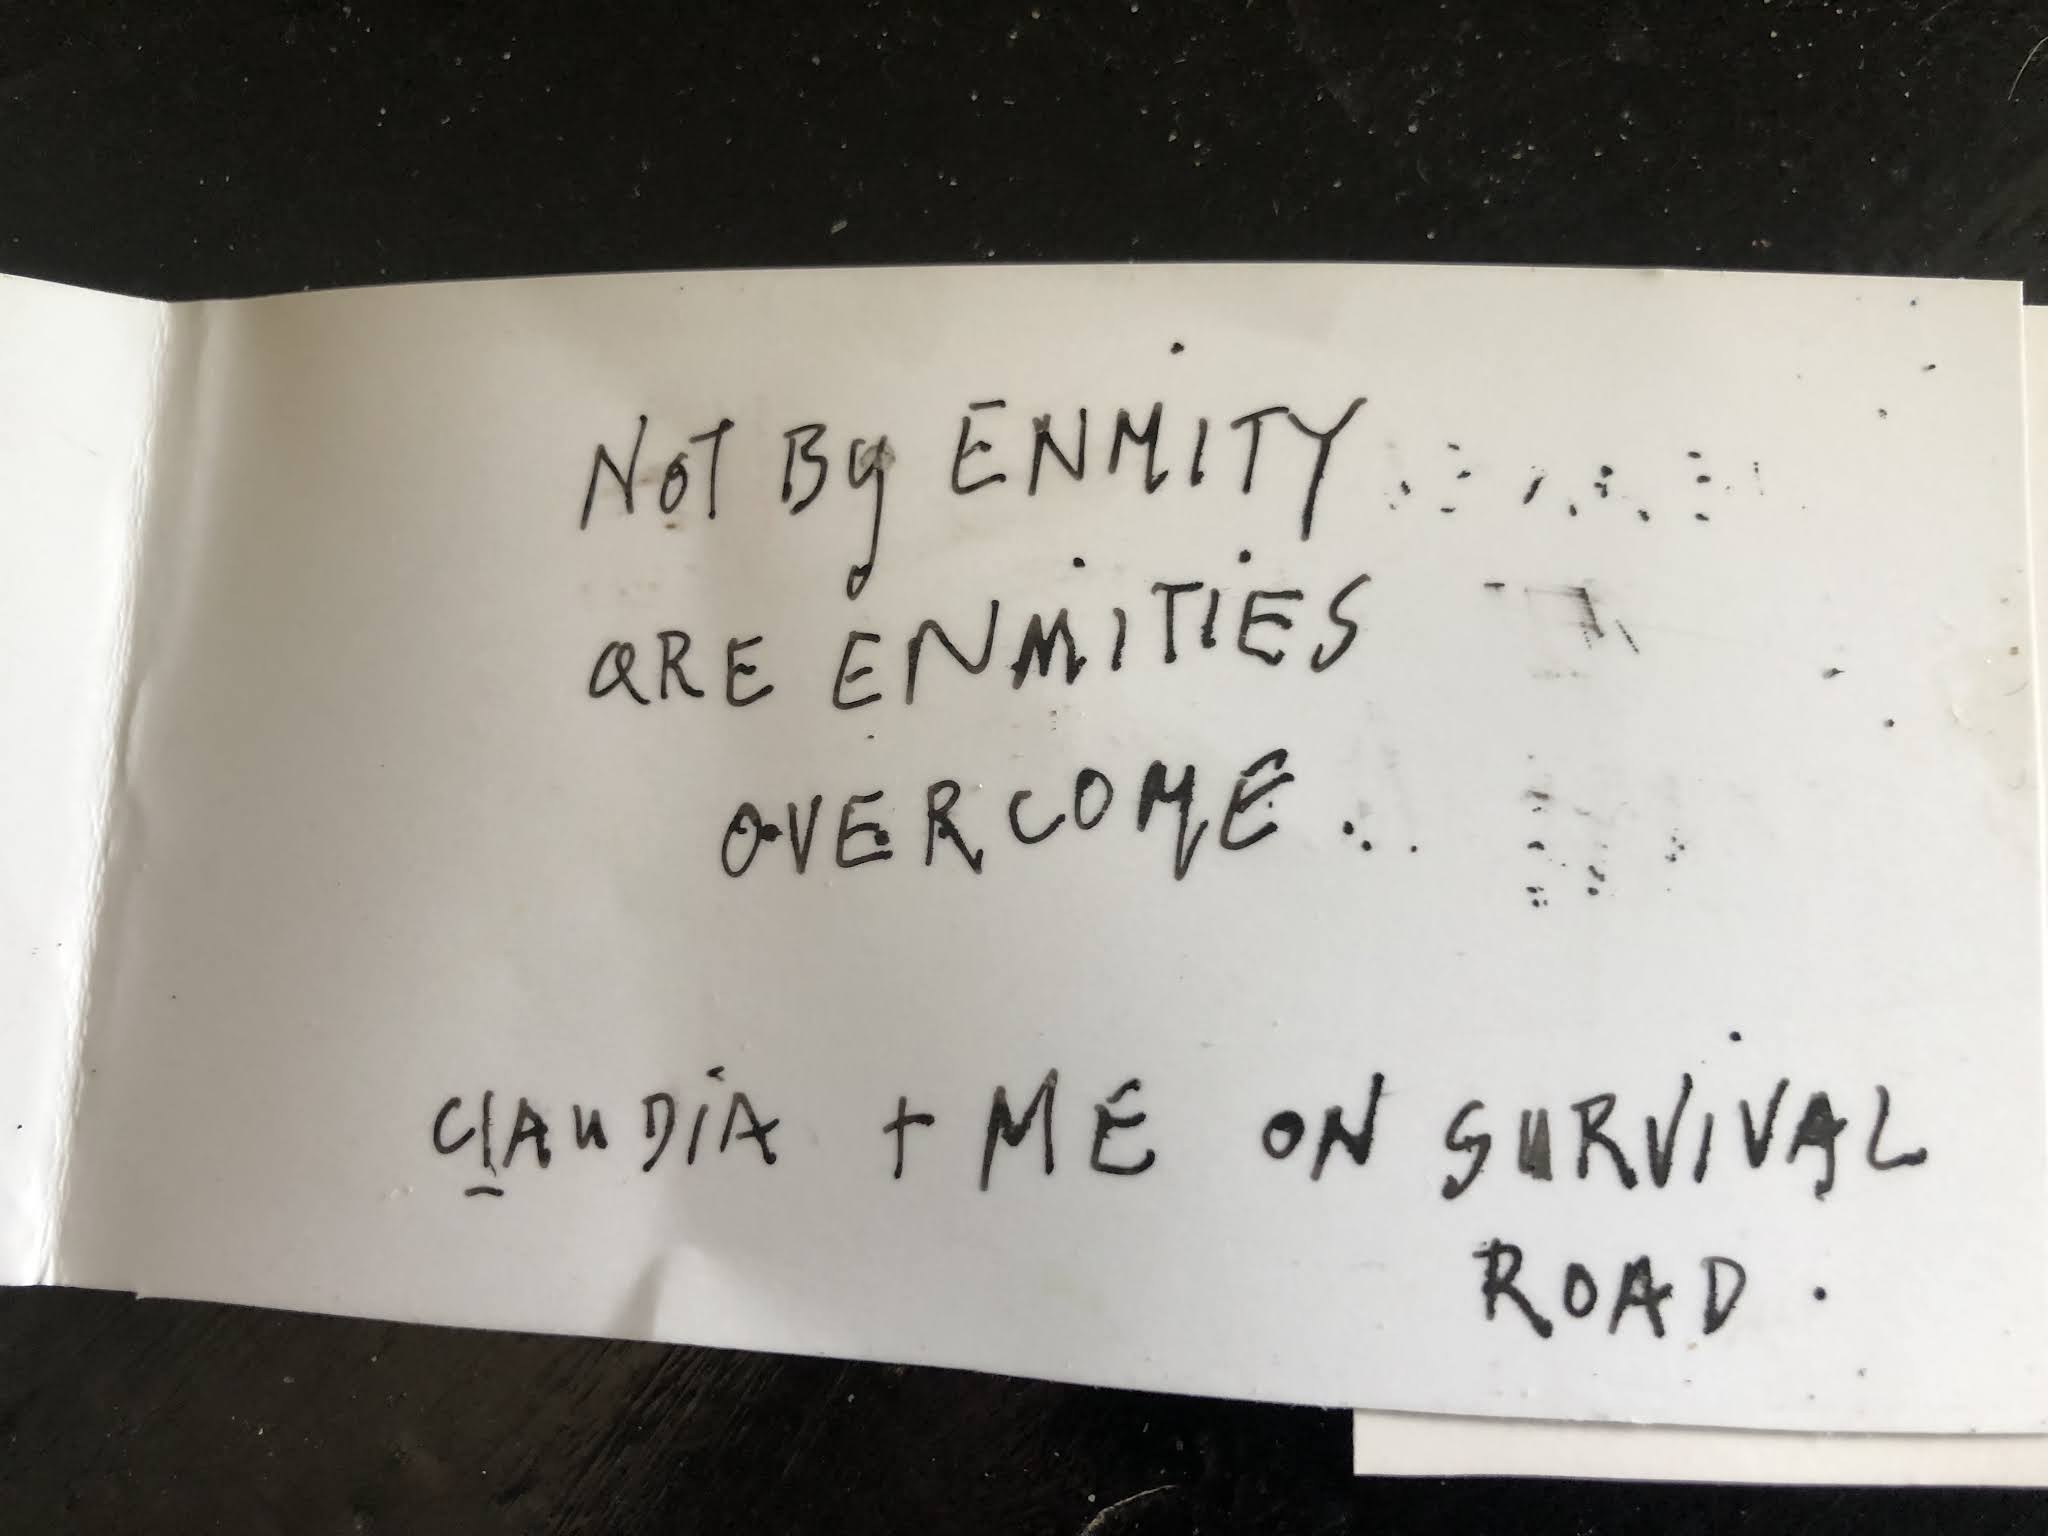 NOT By ENMITY
aRE ENMITIES
OVERCOME.
ClAUDiA + ME ON SURVIVAL
ROAD.